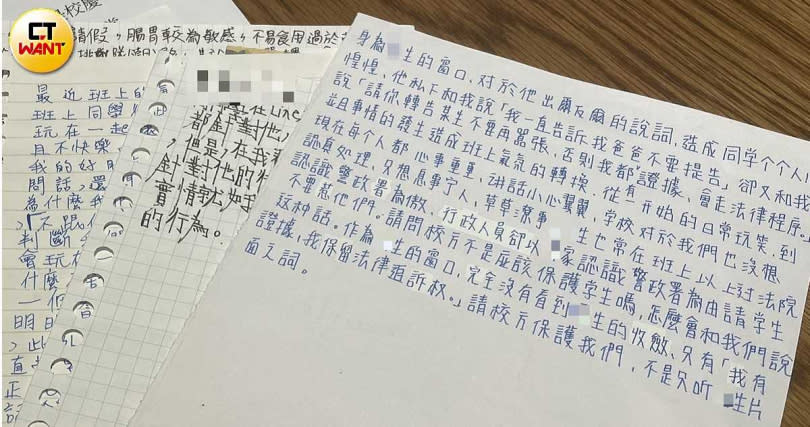 CT
WANT
校慶
請假,腸胃較為敏感,不易食用過於
最近班上的
班上同學
玩在一起
且不快樂
我的好朋
問話,還
為什麼我
判斷
會玩在
什麼
一個
明日
,此
直
正
在Line
都針對他,
,但是,在我
針對他的
實情就如
的行為。
身為 生的窗口,對於他出爾反爾的說詞,造成同学个个人
惶惶、他私下和我說「我一直告訴我爸爸不要提告」卻又和我
說「請你轉告某生不要再囂張、否則我都有證據、會走法律程序。
並且事情的發生造成班上氣氛的轉換、從一開始的日常玩笑、到
現在每个人都心事重重、講話小心翼翼、学校對於我們也沒想
認真處理、只想息事宁人、草草潦事 生也常在班上以上过法院
認識警政署為傲、行政人員卻以 家認識警政署為由請学生
不要惹他們。請問校方不是應該保護学生嗎、怎麼會和我們說
这种話。作為 生的窗口,完全沒有看到 生的收斂、只有「我有
證據,我保留法律追訴权。」請校方保護我們、不是只听 生片
面之詞。